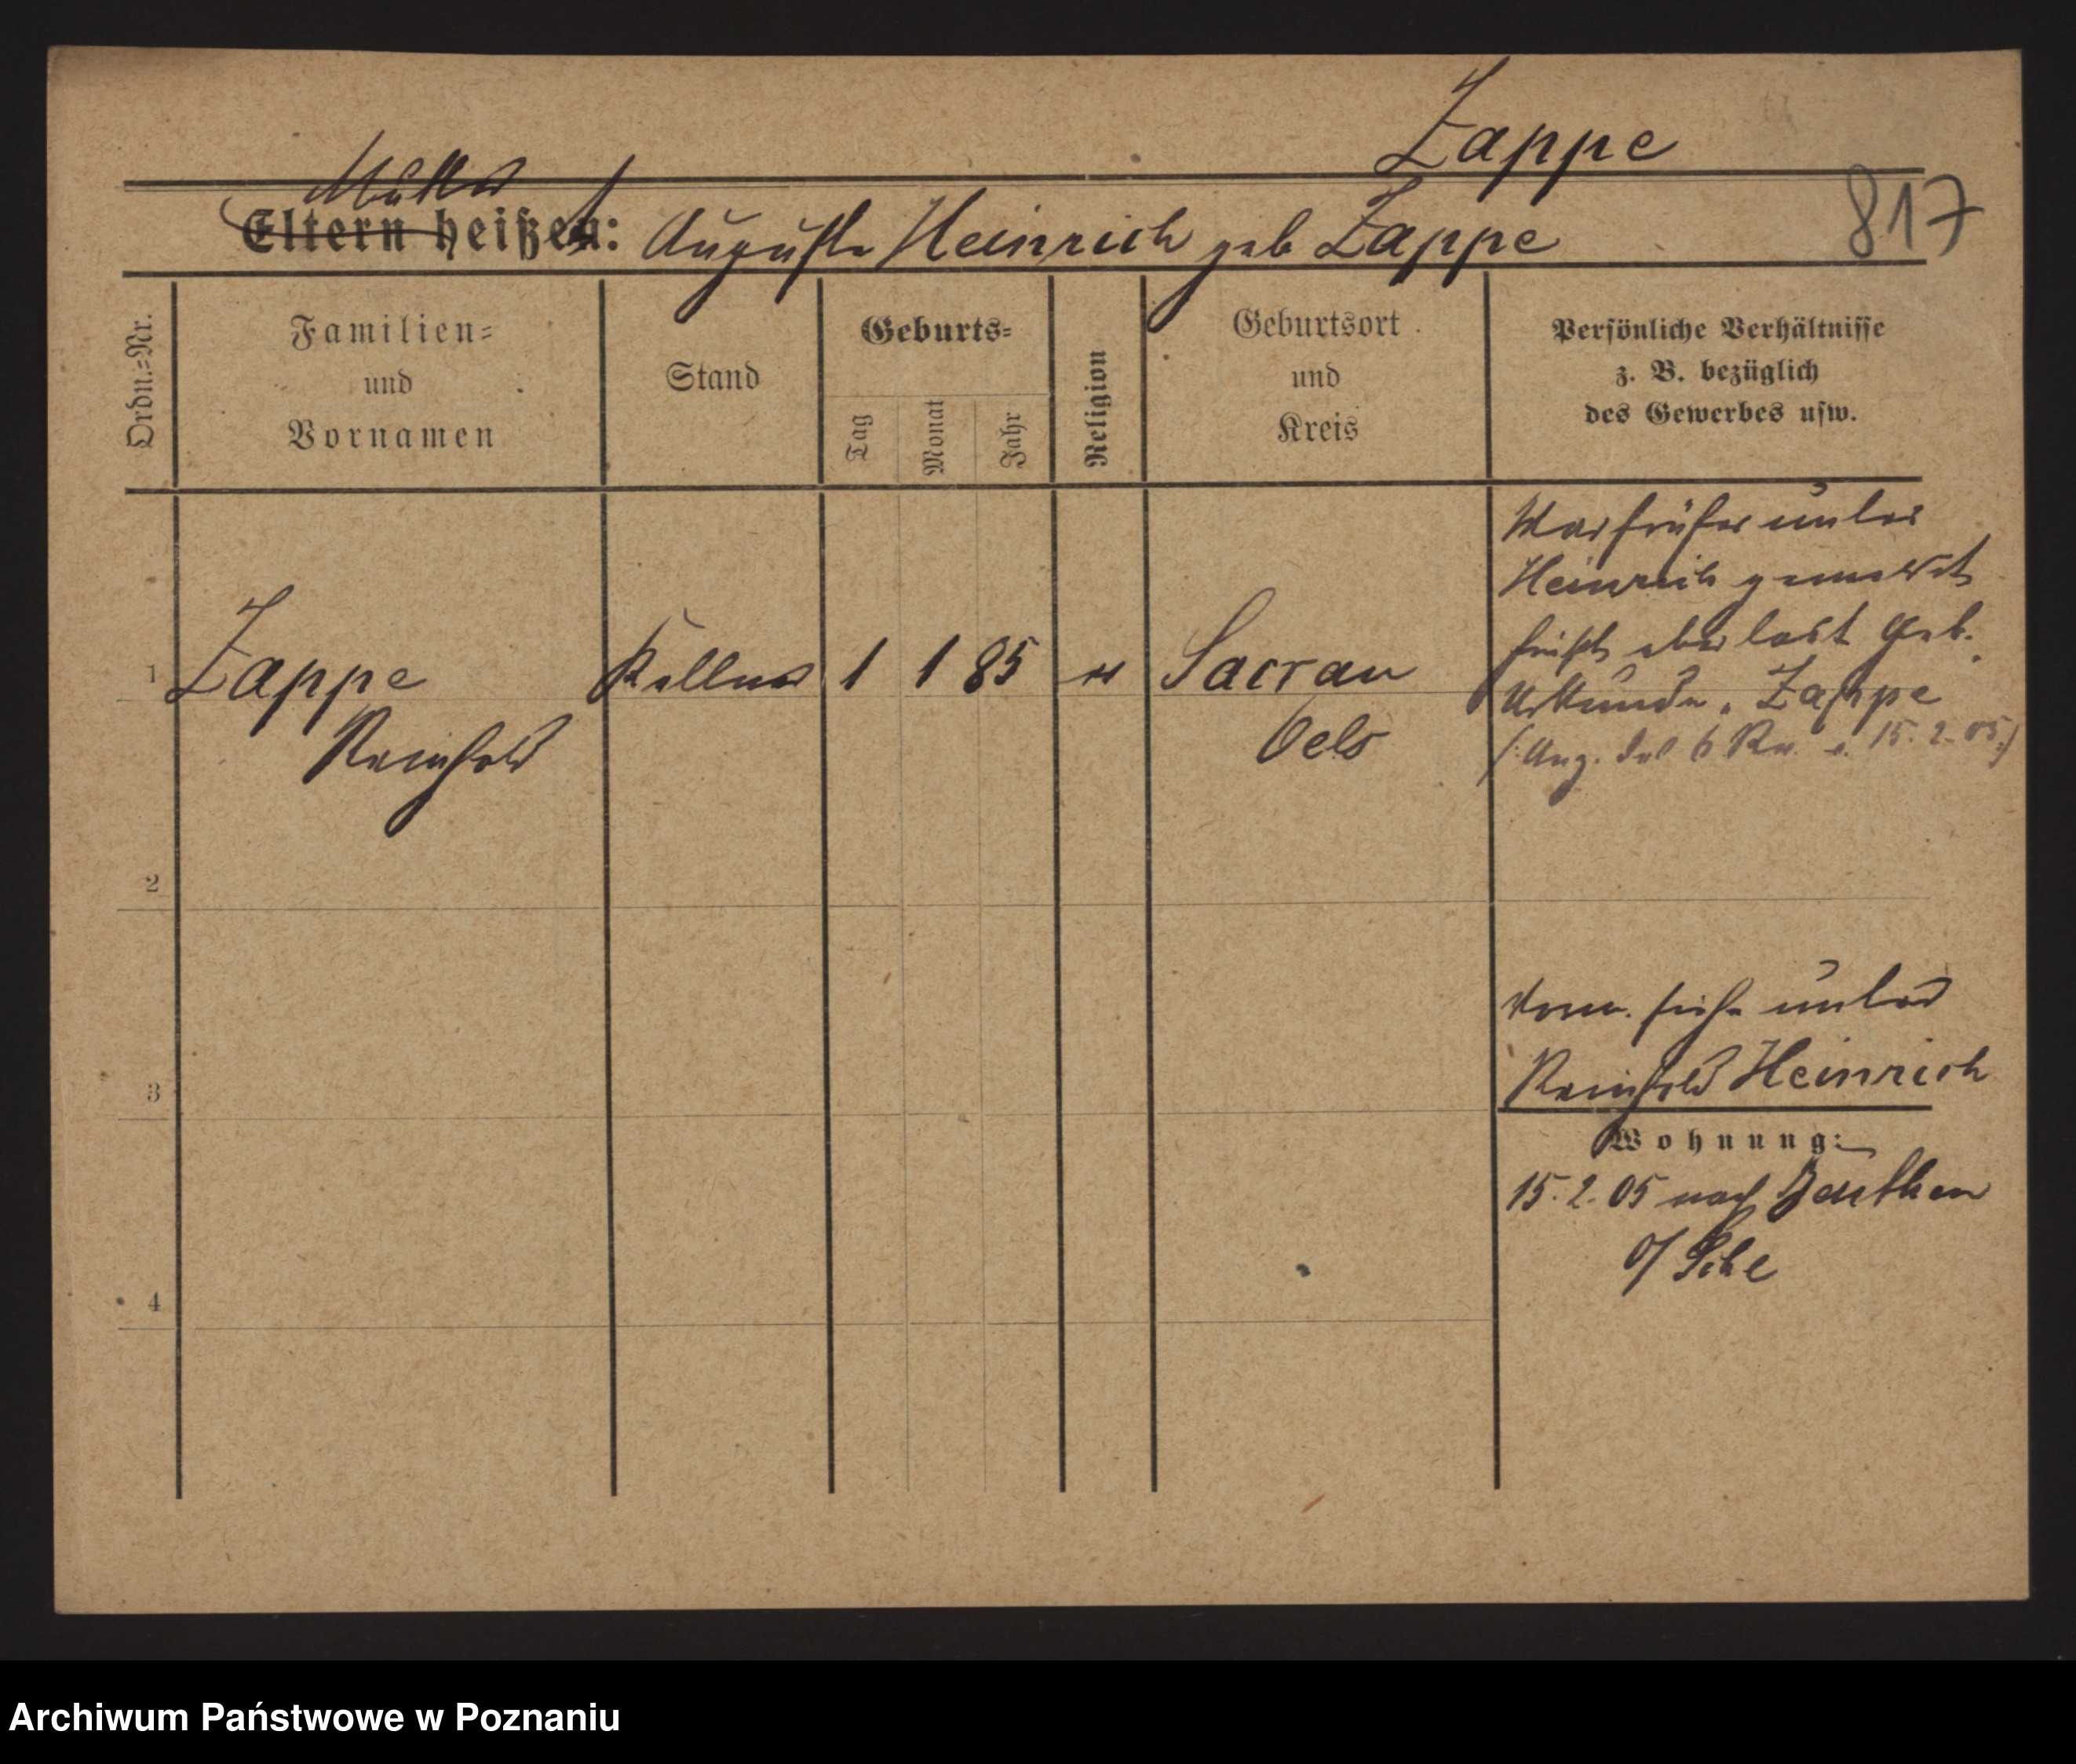 Zappe
817
Mutter
Eltern heißen: Auguste Heinrich geb Zappe
Ordn.=Nr.
Familien=
und
Vornamen
Stand
Geburts=
Tag
Monat
Jahr
Religion
Geburtsort
und
Kreis
Persönliche Verhältnisse
z. B. bezüglich
des Gewerbes usw.
1
Zappe
Reinhold
Kellner
1
1
85
Sacrau
Oels
War früher unter
Heinrich gemeldet
heißt aber laut Geb.
Urkunde Zappe
15. 2. 05
2
3
Verm. siehe unter
Reinhold Heinrich
Wohnung:
15. 2. 05 nach Beuthen
O/Schl
4
Archiwum Państwowe w Poznaniu